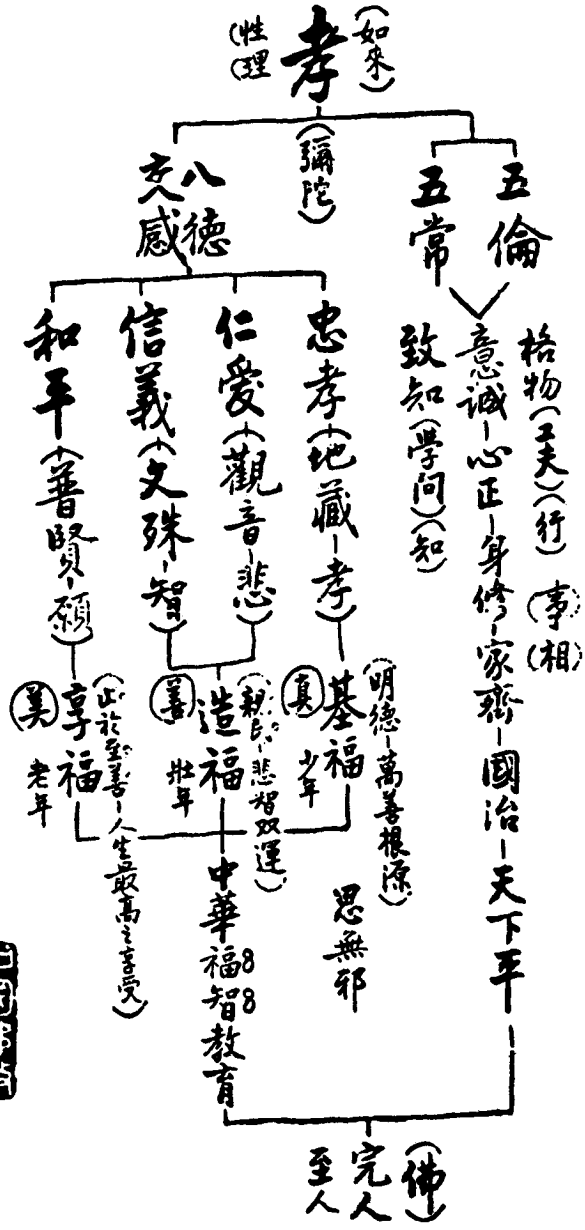 孝
(如來)
(性理
(彌陀)
五倫
五常
八德
交感
格物(工夫)(行)
意誠-心正-身修-家齊-國治-天下平
致知(學問)(知)
(事相)
忠孝(地藏-孝)
仁愛(觀音-悲)
信義(文殊-智)
和平(普賢-願)
(明德-萬善根源)
真
基福
少年
思無邪
(親民-悲智双運)
善
造福
壯年
(止於至善-人生最高之享受)
美
享福
老年
中華福智教育
(佛)
完人
至人